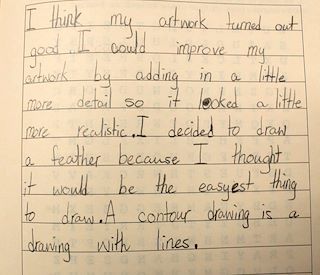 I think my artwork turned out
good. I could improve my
artwork by adding in a little
more detail so it looked a little
more realistic. I decided to draw
a feather because I thought
it would be the easyest thing
to draw. A contour drawing is a
drawing with lines.